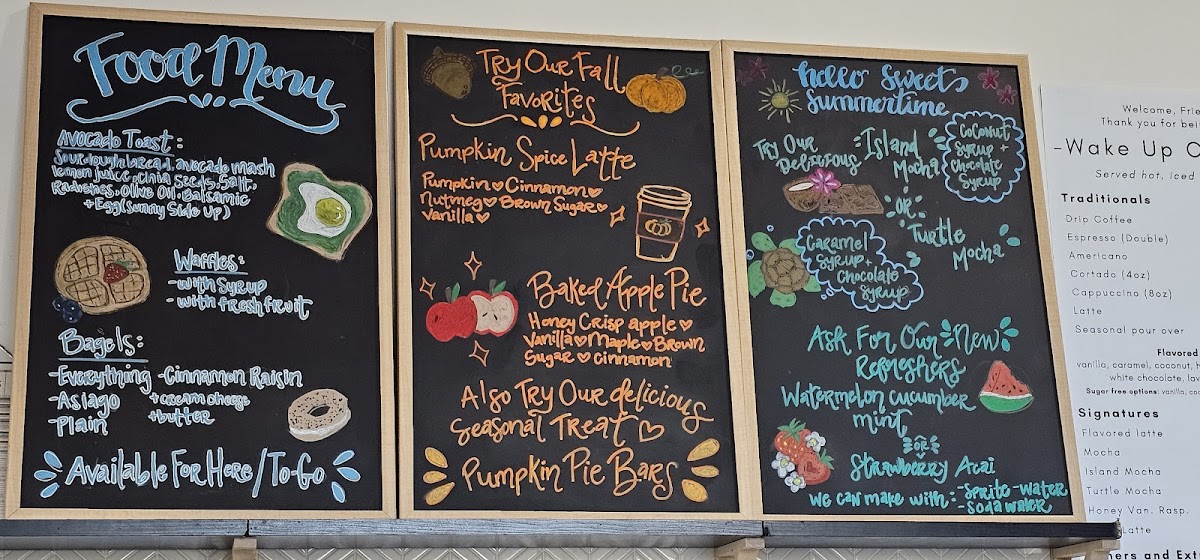 Food Menu
Avocado Toast:
Sourdough bread, avocado mash
lemon juice, Chia seeds, Salt,
Radishes, Olive Oil, Balsamic
+ Egg (Sunny Side Up)
Waffles:
- with Syrup
- with fresh fruit
Bagels:
- Everything - Cinnamon Raisin
- Asiago + cream cheese
- Plain + butter
Available For Here/To-Go
Try Our Fall
Favorites
Pumpkin Spice Latte
Pumpkin Cinnamon
Nutmeg Brown Sugar
Vanilla
Baked Apple Pie
Honey Crisp apple
Vanilla Maple Brown
Sugar Cinnamon
Also Try Our delicious
Seasonal Treat
Pumpkin Pie Bars
hello Sweet
Summertime
Try Our
Delicious
Island
Mocha
Coconut
Syrup +
Chocolate
Syrup
OR
Turtle
Mocha
Caramel
Syrup +
Chocolate
Syrup
Ask For Our New
Refreshers
Watermelon cucumber
mint
OR
Strawberry Acai
We can make with: - Sprite - Water
- Soda water
Welcome, Frie
Thank you for bei
-Wake Up C
Served hot, iced
Traditionals
Drip Coffee
Espresso (Double)
Americano
Cortado (4oz)
Cappuccino (8oz)
Latte
Seasonal pour over
Flavored
vanilla, caramel, coconut, h
white chocolate, lav
Sugar free options: vanilla, co
Signatures
Flavored latte
Mocha
Island Mocha
Turtle Mocha
Honey Van. Rasp.
Latte
ners and Ext